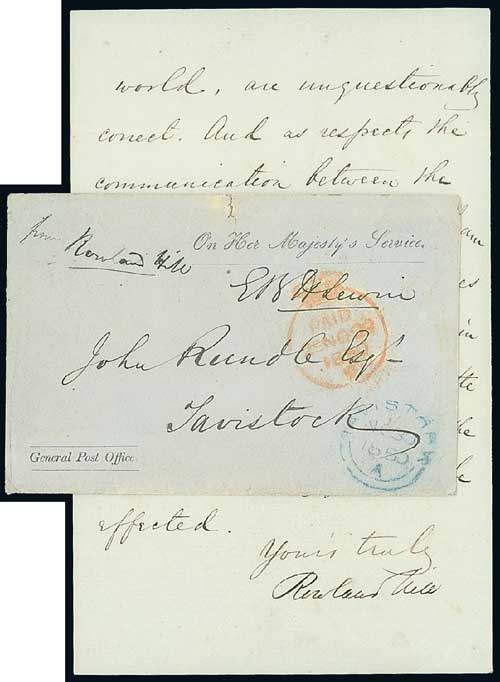 world, are unquestionably
correct. And as respects the
communication between the
from Rowland Hill
On Her Majesty's Service.
John Rundle Esqr
Tavistock
General Post Office.
PAID
TAVISTOCK
A
effected.
Yours truly
Rowland Hill